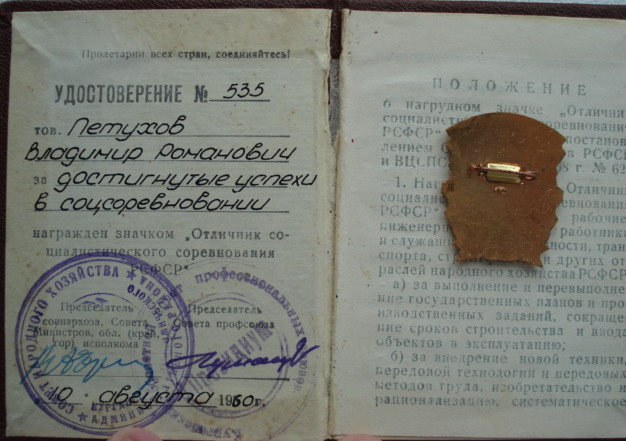 Пролетарии всех стран, соединяйтесь!
УДОСТОВЕРЕНИЕ № 535
тов. Петухов
Владимир Романович
за достигнутые успехи
в соцсоревновании
награжден значком „Отличник со-
циалистического соревнования
РСФСР"
Председатель
совнархоза, Совета
Министров, обл. (край)
тор) исполкома
Председатель
Совета профсоюза
10 августа 1960г.
СОВЕТ НАРОДНОГО ХОЗЯЙСТВА
ПОЛОЖЕНИЕ
о нагрудном значке „Отличник
социалист соревнования
РСФСР"
лением РСФСР
и ВЦСПС г. № 62
1. Наг Отличник
социалис евнования
РСФСР" рабочие,
инженерн
и служащи ности, тран
спорта, стр других от
раслей народного хозяйства РСФСР
а) за выполнение и перевыполне
ние государственных планов и про
изводственных заданий, сокраще
ние сроков строительства и ввода
объектов в эксплуатацию;
б) за внедрение новой техники,
передовой технологии и передовых
методов труда, изобретательство и
рационализацию, систематическое